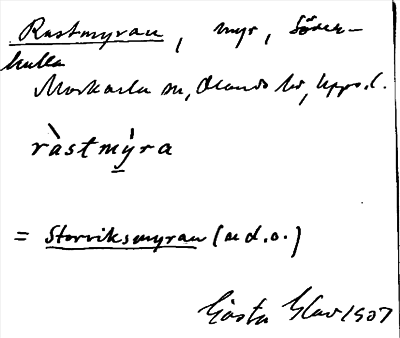 Rastmyran, myr, Söder-
hulla
Morkarla sn, Olands hd, Upps. l.
ràstmỳra
= Storviksmyran (ud. o.)
Gösta 1907